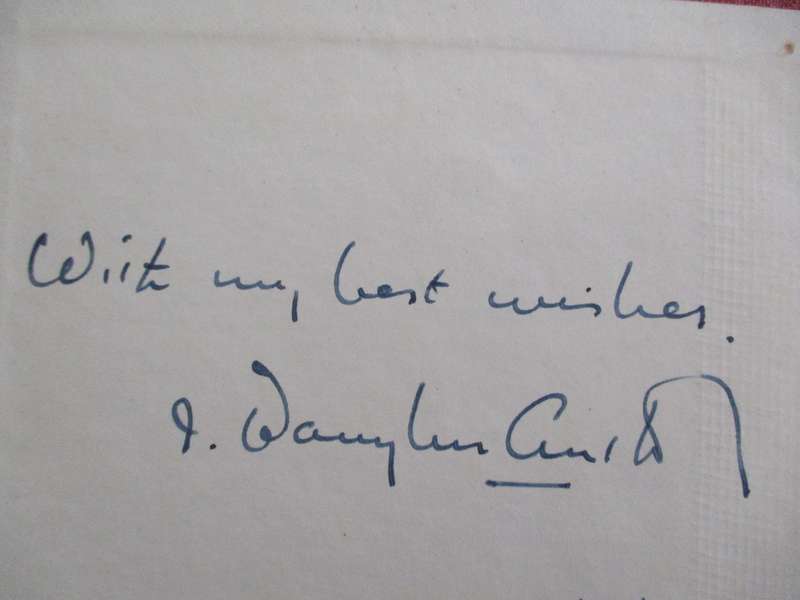 With my best wishes.
J. Douglas Smith